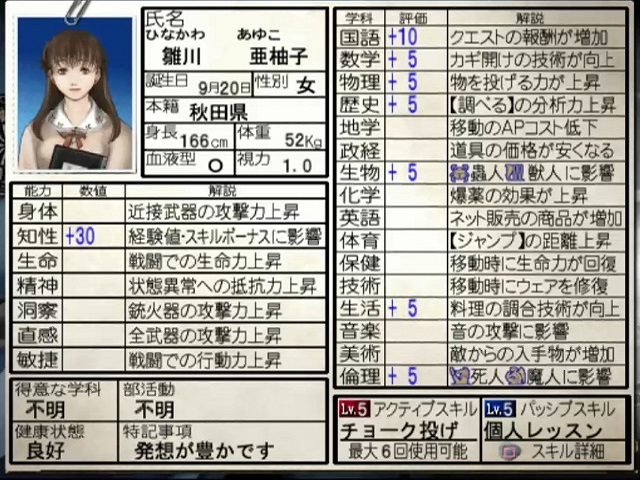 氏名
ひなかわ あゆこ
雛川 亜柚子
誕生日 9月20日 性別 女
本籍 秋田県
身長 166cm 体重 52Kg
血液型 O 視力 1.0
能力 数値 解説
身体 近接武器の攻撃力上昇
知性 +30 経験値・スキルボーナスに影響
生命 戦闘での生命力上昇
精神 状態異常への抵抗力上昇
洞察 銃火器の攻撃力上昇
直感 全武器の攻撃力上昇
敏捷 戦闘での行動力上昇
得意な学科 部活動
不明 不明
健康状態 特記事項
良好 発想が豊かです
学科 評価 解説
国語 +10 クエストの報酬が増加
数学 + 5 カギ開けの技術が向上
物理 + 5 物を投げる力が上昇
歴史 + 5 【調べる】の分析力上昇
地学 移動のAPコスト低下
政経 道具の価格が安くなる
生物 + 5 蟲人 獣人に影響
化学 爆薬の効果が上昇
英語 ネット販売の商品が増加
体育 【ジャンプ】の距離上昇
保健 移動時に生命力が回復
技術 移動時にウェアを修復
生活 + 5 料理の調合技術が向上
音楽 音の攻撃に影響
美術 敵からの入手物が増加
倫理 + 5 死人 魔人に影響
Lv.5 アクティブスキル
チョーク投げ
最大6回使用可能
Lv.5 パッシブスキル
個人レッスン
スキル詳細